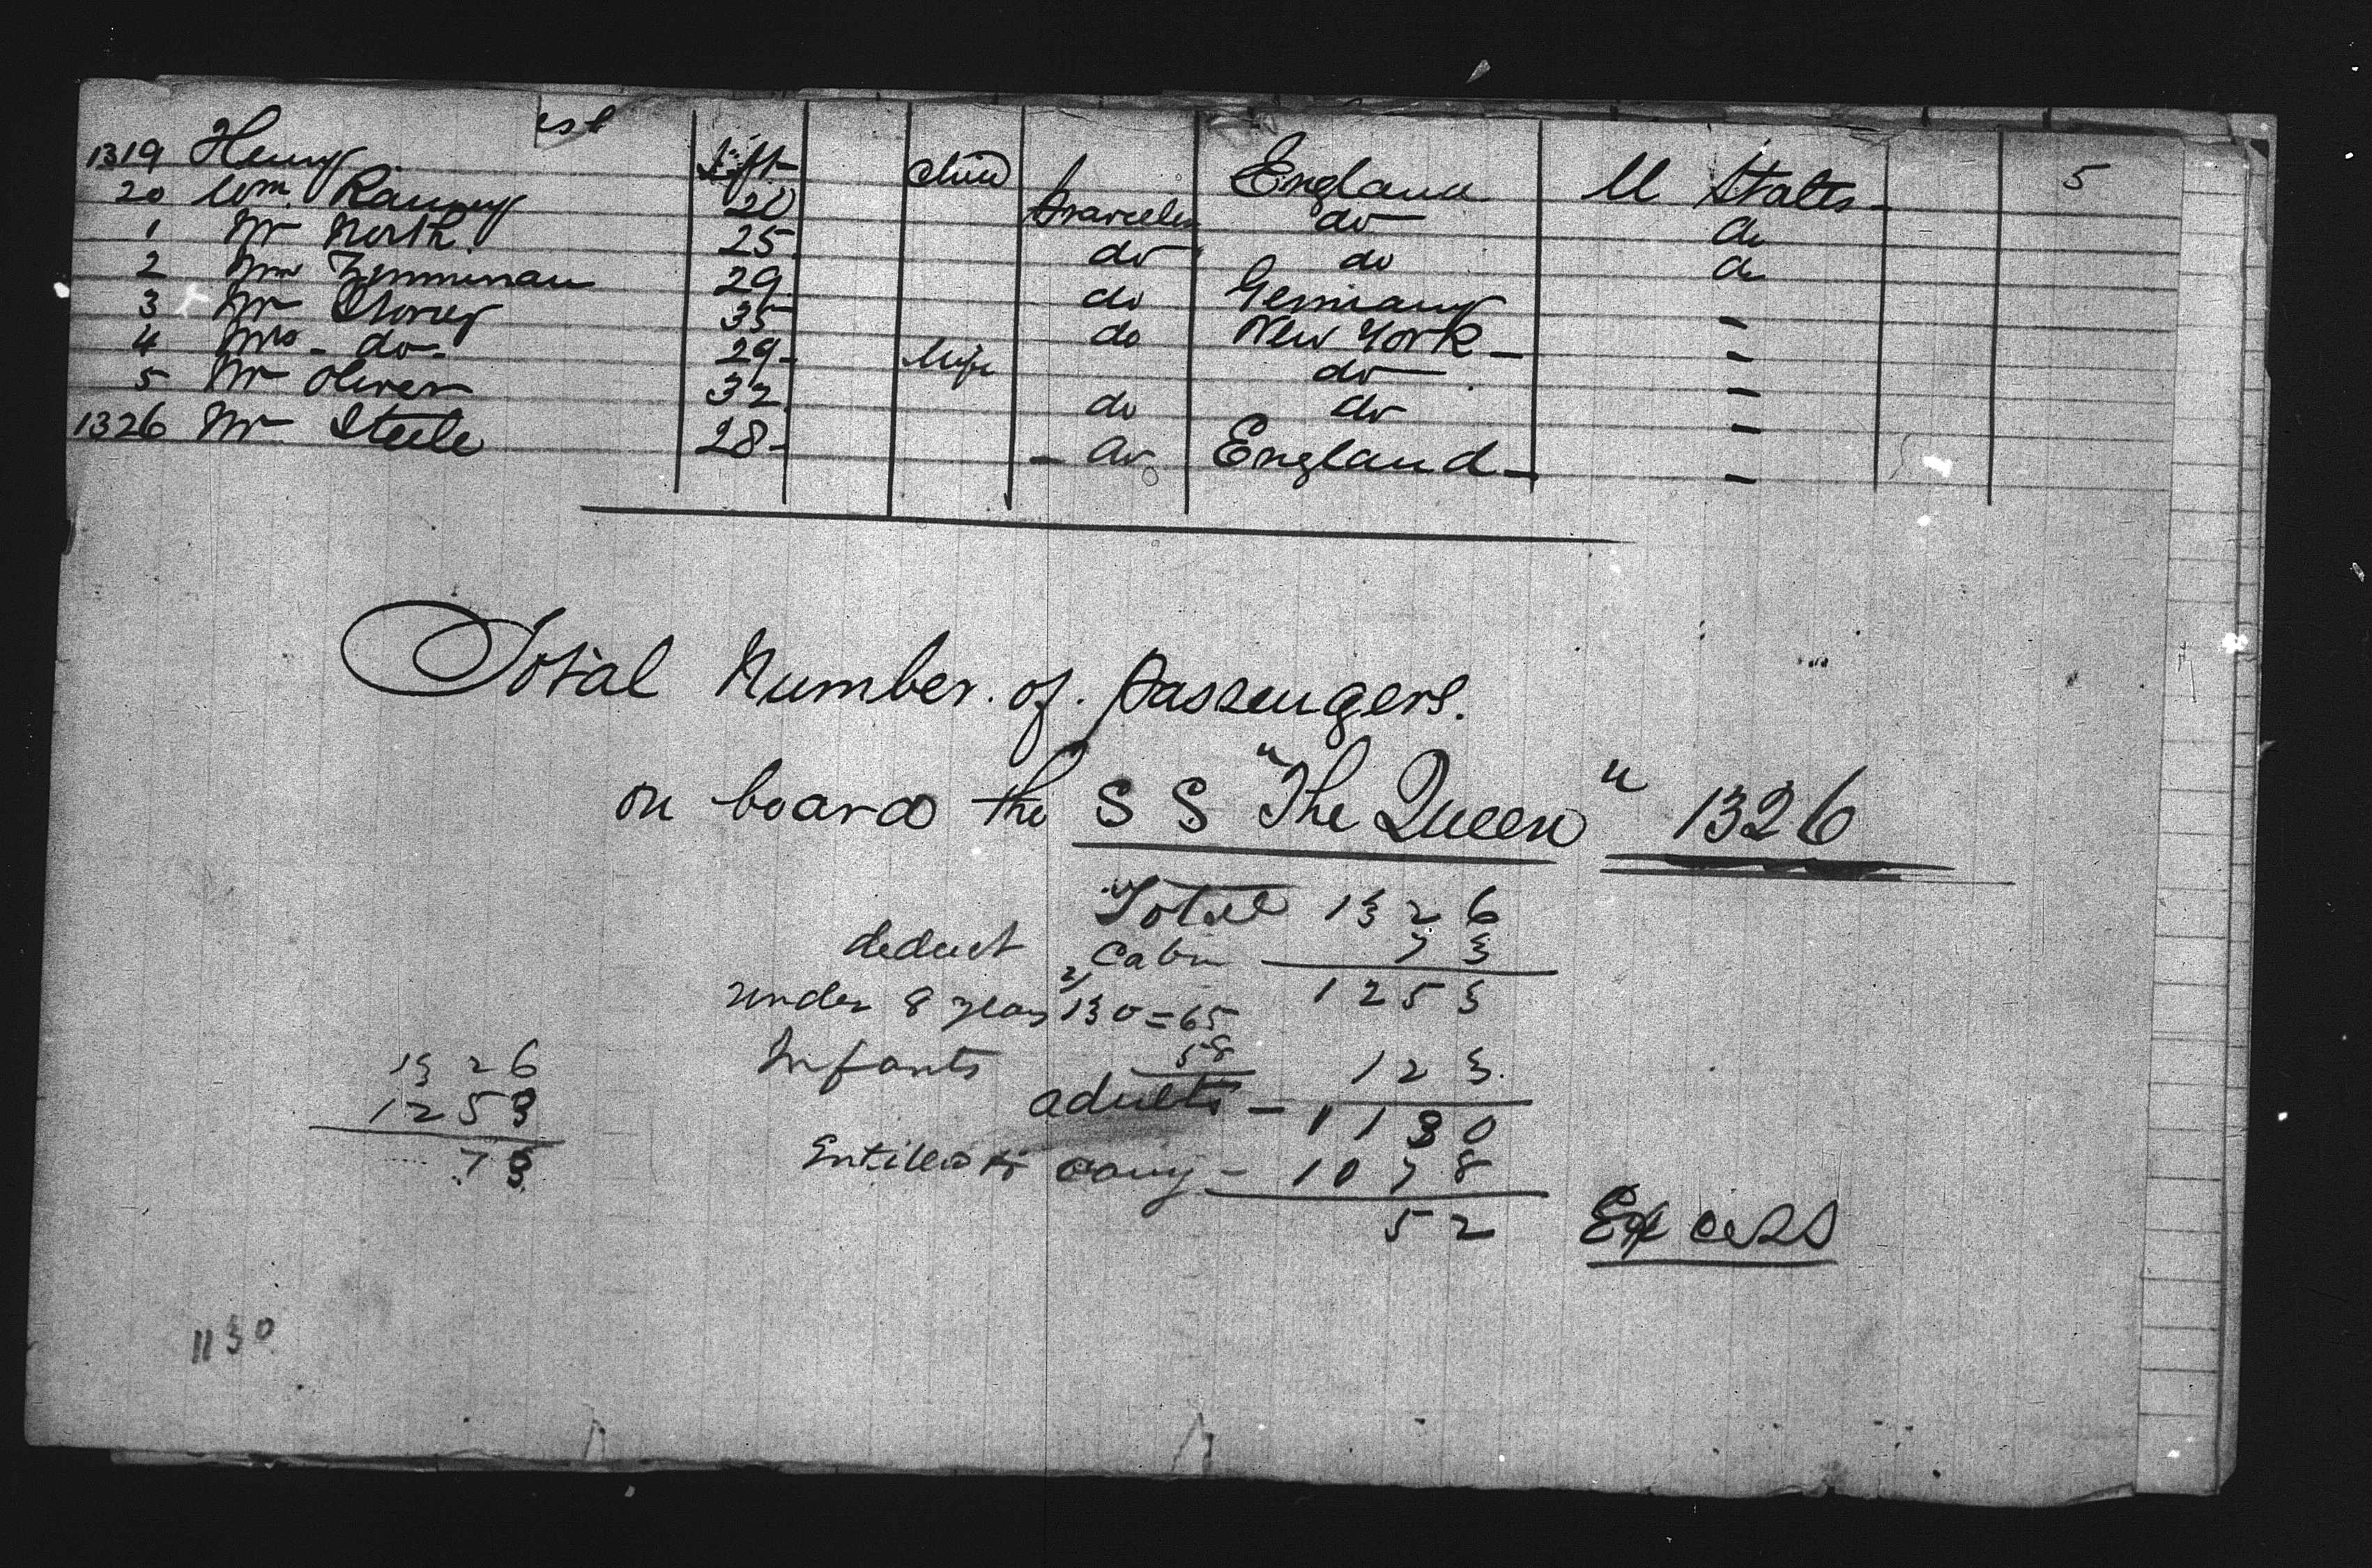 1319 Henry Inft child England U States - 5
20 Wm. Ranny 20 traveler do do
1 Mr North 25 do do do
2 Mr Zimminan 29 do Germany -
3 Mr Storey 35 do New York - -
4 Mrs - do - 29 - Wife do -
5 Mr Oliver 32 do do -
1326 Mr Steele 28 - - do England - -
Total Number of Passengers.
on board the SS "The Queen" 1326
Total 1326
deduct Cabin 73
1253
under 8 years 2/130 = 65
Infants 58 123
adults - 1130
Entitled to carry - 1078
52 Excess
1326
1253
73
1130